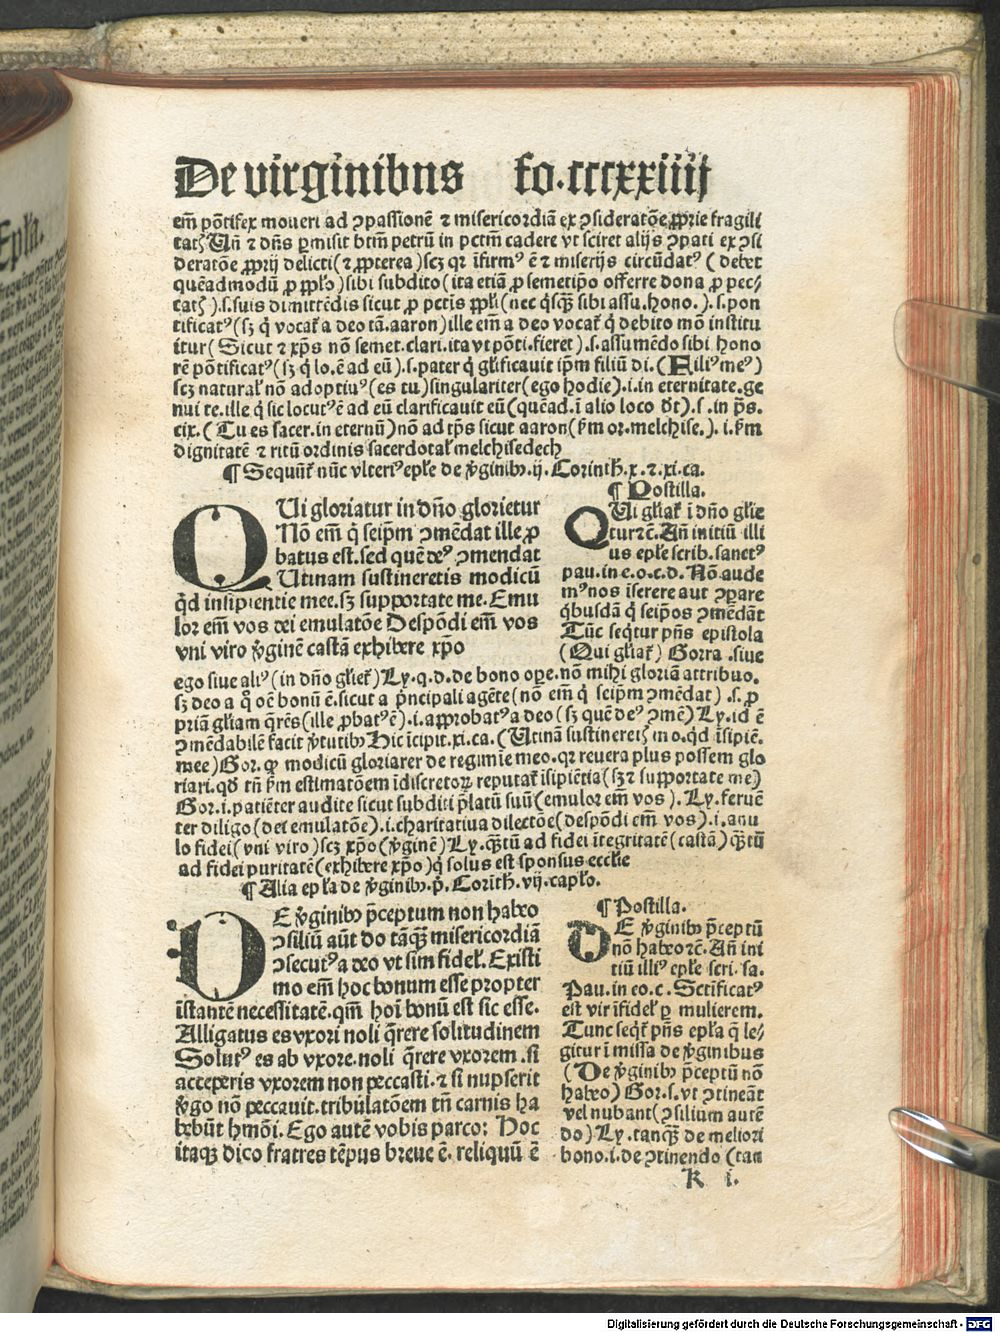 De virginibus fo.cccxxiiij
em̄ põtifex moueri ad ꝯpassionē ⁊ misericordiā ex ꝯsideratõe ꝓprie fragili
tatꝭ Un̄ ⁊ dn̄s ꝑmisit btm̄ petrū in pctm̄ cadere vt sciret alijs ꝯpati ex ꝯsi
deratõe ꝓprij delicti (⁊ ꝓpterea) scꝫ qꝛ īfirmꝰ ē ⁊ miserijs circūdatꝰ (debet
quēadmodū ꝓ ppl̓o) sibi subdito (ita etiā ꝓ semetipo offerre dona ꝓ pec⸗
catꝭ).s.suis dimittēdis sicut ꝓ pctis ppl̓i (nec q̇sq̄ꝫ sibi assu.hono.).s.pon
tificatꝰ (sꝫ q̇ vocat̄ a deo tā.aaron) ille em̄ a deo vocat̄ q̇ debito mō institu
itur (Sicut ⁊ xp̄s nō semet.clari.ita vt põti.fieret).s.assumēdo sibi hono
rē põtificatꝰ (sꝫ q̇ lo.ē ad eū).s.pater q̇ gl̓ificauit ip̄m filiū di.(Filiꝰ meꝰ)
scꝫ natural̓ nō adoptiuꝰ (es tu) singulariter (ego hodie).i.in eternitate.ge
nui te.ille q̇ sic locutꝰ ē ad eū clarificauit eū (quēad.ī alio loco dt̄).s.in p̄s.
cix.(Tu es sacer.in eternū) nō ad tp̄s sicut aaron (ẜm or.melchise.).i.ẜm
dignitatē ⁊ ritū ordinis sacerdotal̓ melchisedech
¶ Sequūt̄ nūc vlteriꝰ ep̄le de v̓ginibꝫ.ij.Corinth̄.x.⁊.xi.ca.
QUi gloriatur in dn̄o glorietur
Nō em̄ q̇ seip̄m ꝯmēdat ille ꝓ
batus est.sed quē deꝰ ꝯmendat
Utinam sustineretis modicū
q̇d insipientie mee.sꝫ supportate me.Emu
lor em̄ vos dei emulatõe Despõdi em̄ vos
vni viro v̓ginē castā exhibere xp̄o
¶ Postilla.
QUi gl̓iat̄ ī dn̄o gl̓ie
tur ⁊c̄.An̄ initiū illi
us ep̄le scrib.sanctꝰ
pau.in e.o.c.d.Nō aude
mꝰ nos īserere aut ꝯpare
q̇busdā q̇ seip̄os ꝯmēdāt
Tūc seq̄tur p̄ns epistola
(Qui gl̓iat̄) Gorra.siue
ego siue aliꝰ (in dn̄o gl̓iet̄) Ly.q.d.de bono oꝑe.nō mihi gloriā attribuo.
sꝫ deo a q̇ oē bonū ē.sicut a p̓ncipali agēte (nō em̄ q̇ seip̄m ꝯmēdat).s.ꝓ
priā gl̓iam q̄rēs (ille ꝓbatꝰ ē).i.approbatꝰ a deo (sꝫ quē deꝰ ꝯmē) Ly.id ē
ꝯmēdabilē facit v̓tutibꝫ Hic īcipit.xi.ca.(Utinā sustineretꝭ mo.qd īsipiē.
mee) Gor.ꝙ modicū gloriarer de regimīe meo.qꝛ reuera plus possem glo
riari.qd tn̄ ẜm estimatōem īdiscretoꝝ reputat̄ īsipiētia (sꝫ ⁊ supportate me)
Gor.i.patiēter audite sicut subditi p̄latū suū (emulor em̄ vos).Ly.feruē
ter diligo (dei emulatõe).i.charitatiua dilectõe (despõdi em̄ vos).i.anu
lo fidei (vni viro) scꝫ xp̄o (v̓ginē) Ly.q̄ꝫtū ad fidei ītegritatē (castā) q̄ꝫtū
ad fidei puritatē (exhibere xp̄o) q̇ solus est sponsus eccl̓ie
¶ Alia ep̄la de v̓ginibꝫ.p̓.Corīth̄.vij.capl̓o.
DE v̓ginibꝫ p̄ceptum non habeo
ꝯsiliū aūt do tāq̄ꝫ misericordiā
ꝯsecutꝰ a deo vt sim fidel̓.Existi
mo em̄ hoc bonum esse propter
īstantē necessitatē.qm̄ hoī bonū est sic esse.
Alligatus es vxori noli q̄rere solitudinem
Solutꝰ es ab vxore.noli q̄rere vxorem.si
acceperis vxorem non peccasti.⁊ si nupserit
v̓go nō peccauit.tribulatõem tn̄ carnis ha
bebūt hmōi.Ego autē vobis parco: Hoc
itaqꝫ dico fratres tēpus breue ē. reliquū ē
¶ Postilla.
DE v̓ginibꝫ p̄ceptū
nō habeo ⁊c̄.An̄ ini
tiū illiꝰ ep̄le scri.sa.
Pau.in eo.c.Sctīficatꝰ
est vir īfidel̓ ꝑ mulierem.
Tunc seqt̄ p̄ns ep̄la q̄ le⸗
gitur ī missa de v̓ginibus
(De v̓ginibꝫ p̄ceptū nō
habeo) Gor.s.vt ꝯtineāt
vel nubant (ꝯsilium autē
do) Ly.tanq̄ꝫ de meliori
bono.i.de ꝯtinendo (tan
K i.
Digitalisierung gefördert durch die Deutsche Forschungsgemeinschaft - DFG